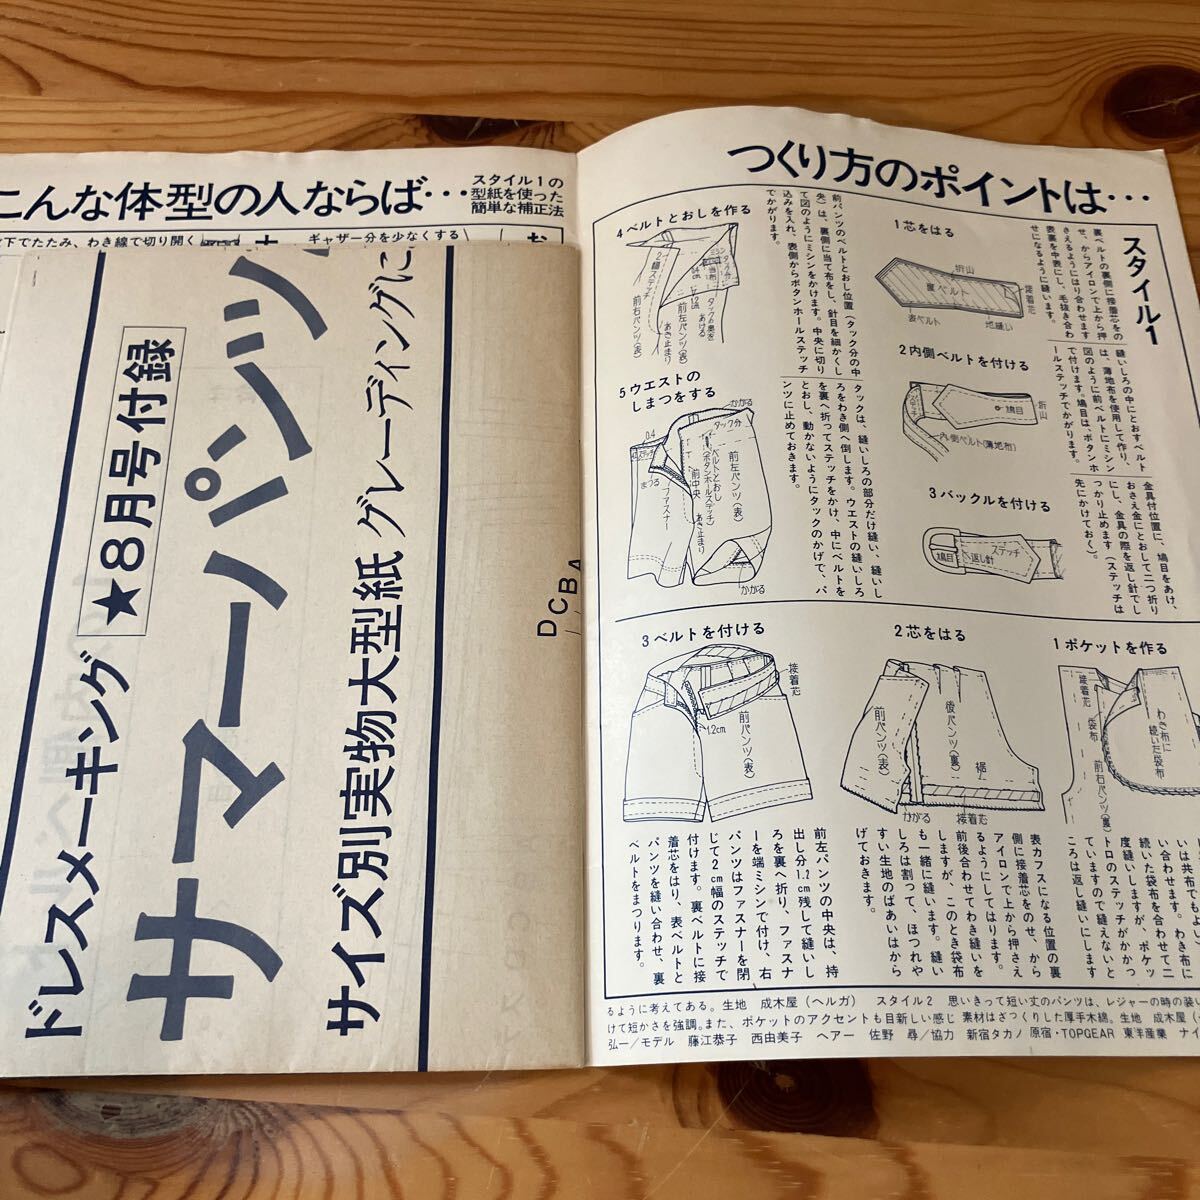 こんな体型の人ならば…
スタイル1の
型紙を使った
簡単な補正法
下でたたみ、わき線で切り開く
ギャザー分を少なくする
お
ドレスメーキング
★8月号付録
サマーパンツ
サイズ別実物大型紙 グレーディングに
D C B A
つくり方のポイントは…
スタイル1
1芯をはる
折山
裏ベルト
接着芯
表ベルト
地縫い
裏ベルトの裏側に接着芯をの
せ、からアイロンで上から押
さえるようにはり合わせます
表裏を中表にし、毛抜き合わ
せになるように縫います。
2内側ベルトを付ける
鳩目
折山
内側ベルト(薄地布)
縫いしろの中にとおすベルト
は、薄地布を使用して作り、
図のように前ベルトにミシン
で付けます。鳩目は、ボタンホ
ールステッチでかがります。
3バックルを付ける
鳩目
返し針
ステッチ
金具付位置に、鳩目をあけ、
おさえ金にとおして二つ折り
にし、金具の際を返し針でし
っかり止めます(ステッチは
先にかけておく)。
4ベルトとおしを作る
2幅ステッチ
当て布
タック分
前右パンツ(表)
あき止まり
前左パンツ(表)
タックの奥を
あける
前パンツのベルトとおし位置(タック分の中
央)は、裏側に当て布をし、針目を細かくし
て図のようにミシンをかけます。中央に切り
込みを入れ、表側からボタンホールステッチ
でかがります。
5ウエストの
しまつをする
かがる
タック分
0.4
ステッチ
まつる
ファスナー
前中央
あき止まり
ベルトとおし
(ボタンホールステッチ)
前左パンツ(表)
かがる
タックは、縫いしろの部分だけ縫い、縫いし
ろをわき側へ倒します。ウエストの縫いしろ
を裏へ折ってステッチをかけ、中にベルトを
とおし、動かないようにタックのかげで、パ
ンツに止めておきます。
1ポケットを作る
接着芯
袋布
前右パンツ(裏)
わき布に
続いた袋布
いは共布でもよい
い合わせます。わき布に
続いた袋布を合わせて二
度縫いしますが、ポケッ
トロのステッチがかかっ
ていますので縫えないと
ころは返し縫いにします
2芯をはる
前パンツ(表)
後パンツ(裏)
裾
かがる
接着芯
表カフスになる位置の裏
側に接着芯をのせ、から
アイロンで上から押さえ
るようにしてはります。
前後合わせてわき縫いを
しますが、このとき袋布
も一緒に縫います。縫い
しろは割って、ほつれや
すい生地のばあいはから
げておきます。
3ベルトを付ける
接着芯
前パンツ(表)
1.2cm
前パンツ(表)
前左パンツの中央は、持
出し分1.2cm残して縫いし
ろを裏へ折り、ファスナ
ーを端ミシンで付け、右
パンツはファスナーを閉
じて2cm幅のステッチで
付けます。裏ベルトに接
着芯をはり、表ベルトと
パンツを縫い合わせ、裏
ベルトをまつります。
るように考えてある。生地 成木屋(ヘルガ) スタイル2 思いきって短い丈のパンツは、レジャーの時の装い
けて短かさを強調。また、ポケットのアクセントも目新しい感じ 素材はざっくりした厚手木綿。生地 成木屋(
弘一/モデル 藤江恭子 西由美子 ヘアー 佐野 尋/協力 新宿タカノ 原宿・TOPGEAR 東洋産業 ナイ